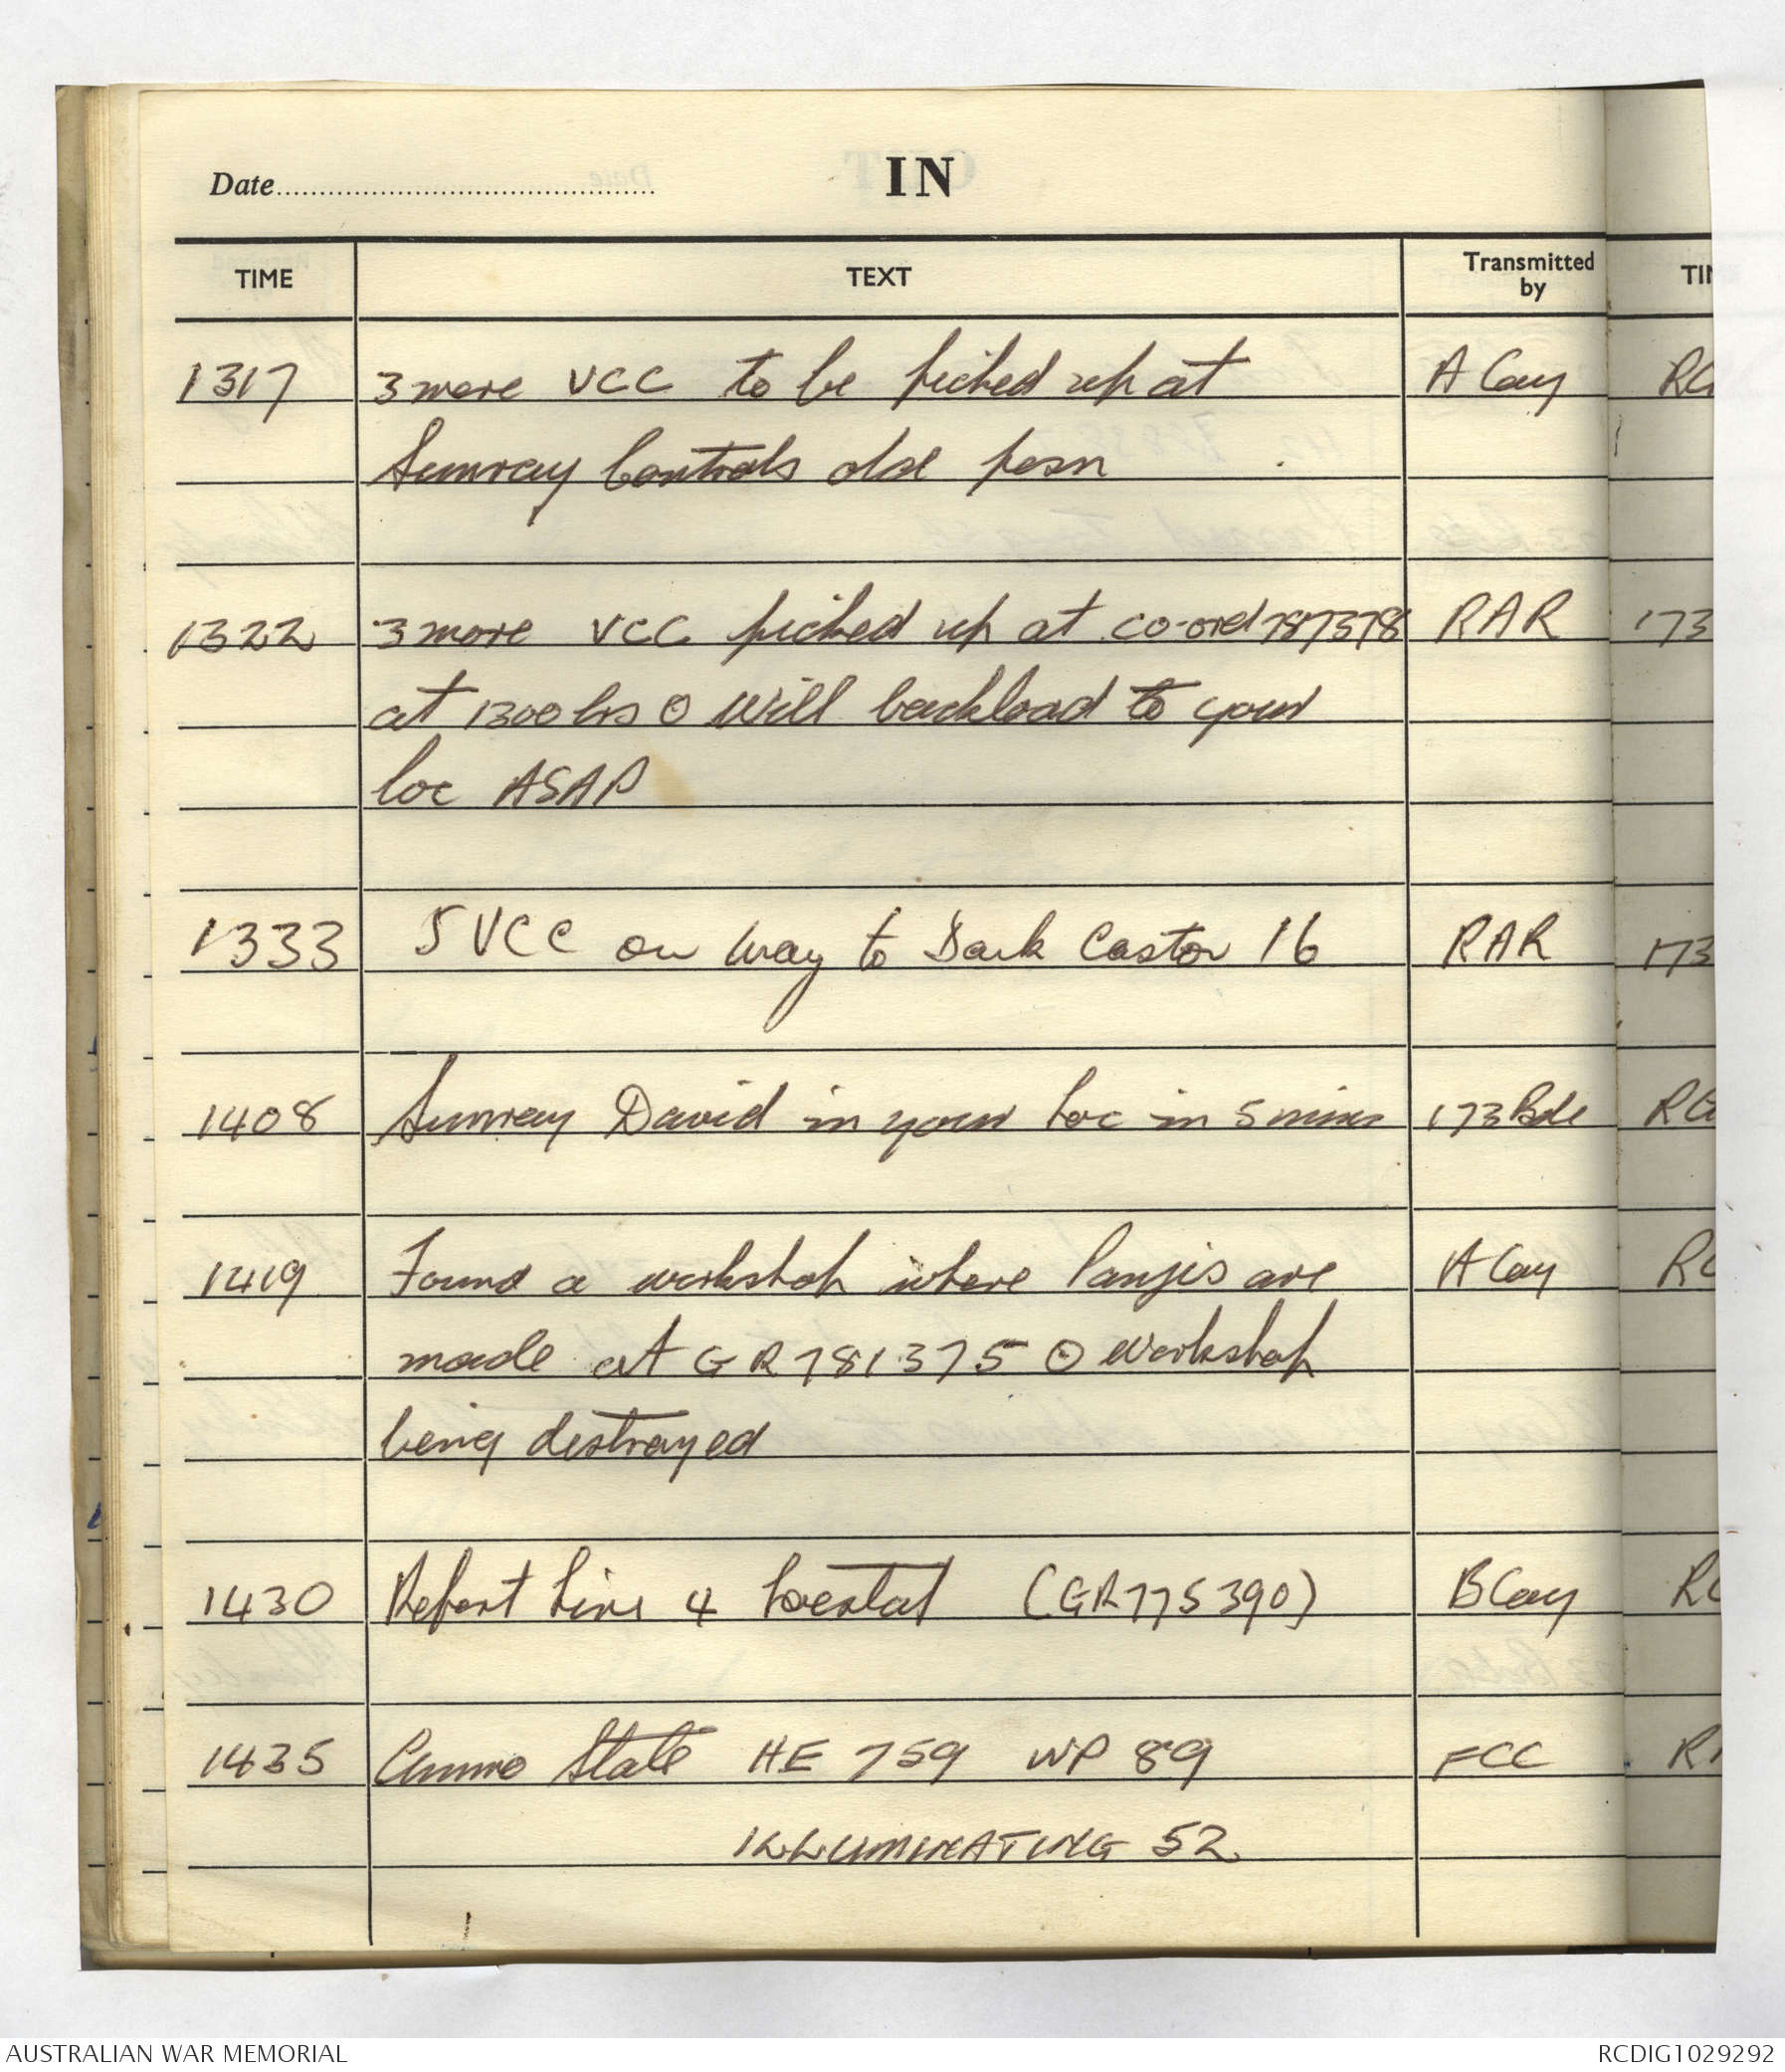 Date
IN
TIME TEXT Transmitted by TI
1317 3 more VCC to be picked up at A Coy RC
Sunray Controls old posn
1322 3 more VCC picked up at co-ord 787378 RAR 173
at 1300 hrs ⊙ Will backload to your
loc ASAP
1333 5 VCC on way to Dark Castor 16 RAR 173
1408 Sunray David in your loc in 5 mins 173 Bde
1419 Found a workshop where Panjis are A Coy
made at GR 781375 ⊙ workshop
being destroyed
1430 Report Line 4 Locstat (GR 775390) B Coy
1435 Ammo State HE 759 WP 89 FCC
ILLUMINATING 52
AUSTRALIAN WAR MEMORIAL RCDIG1029292